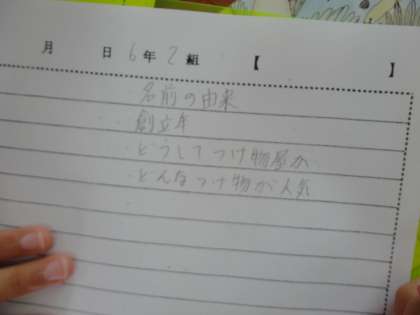 月 日 6年 2組 【 】
名前の由来
創立年
どうしてつけ物屋か
どんなつけ物が人気